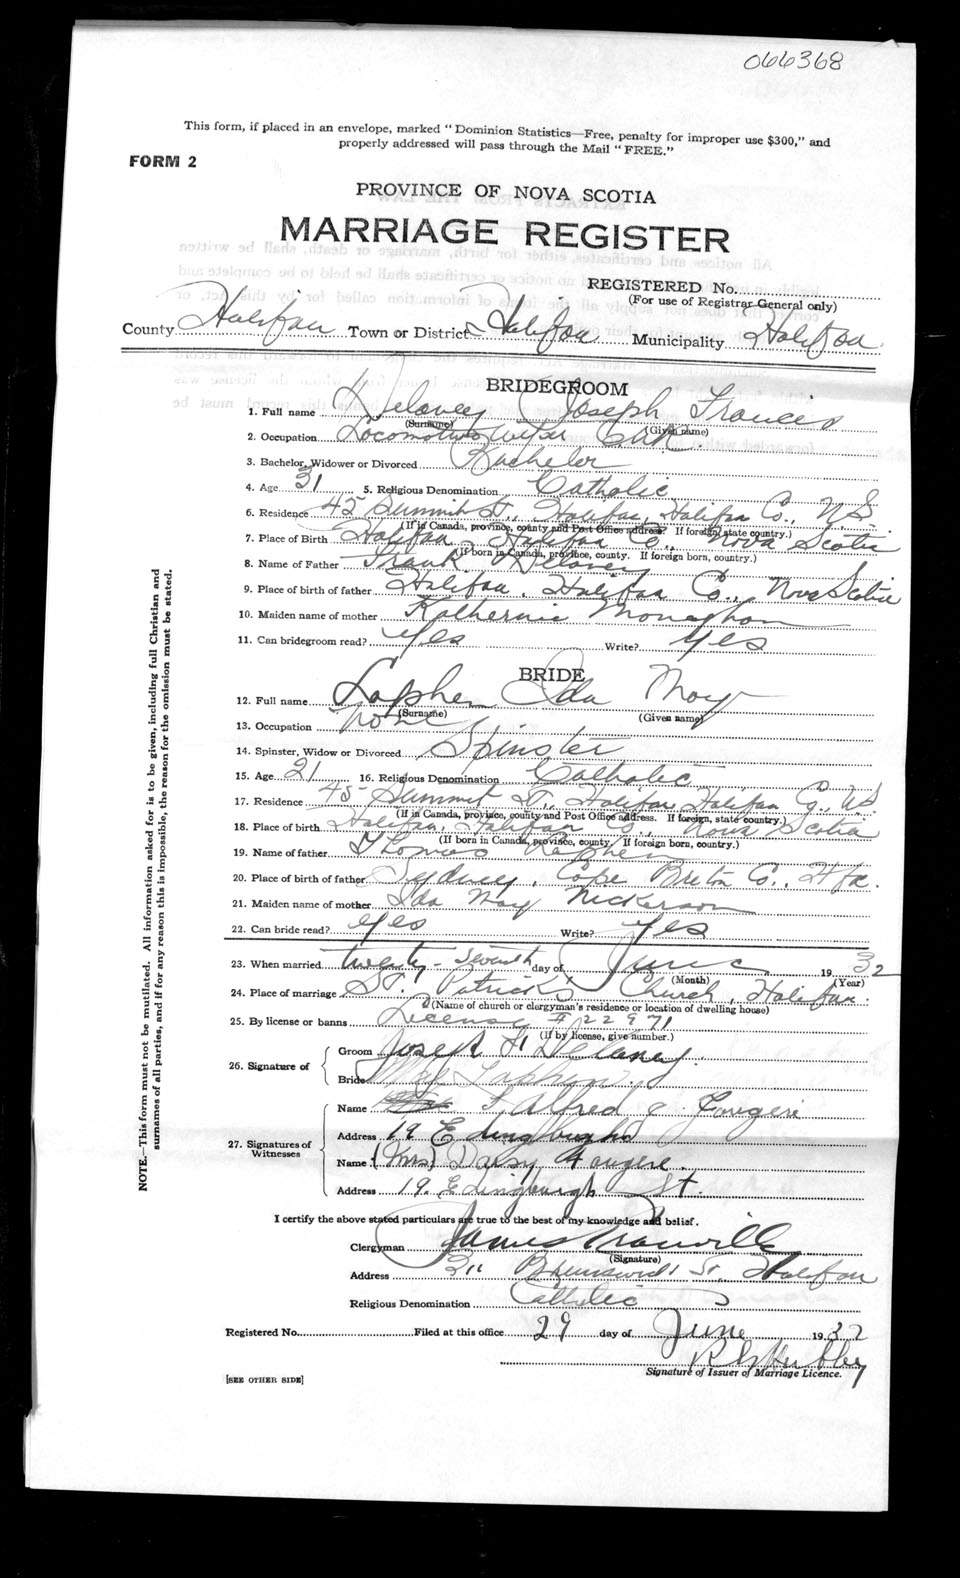 066368
This form, if placed in an envelope, marked "Dominion Statistics—Free, penalty for improper use $300," and
properly addressed will pass through the Mail "FREE."
FORM 2
PROVINCE OF NOVA SCOTIA
MARRIAGE REGISTER
REGISTERED No.
(For use of Registrar General only)
County Halifax Town or District Halifax Municipality Halifax
BRIDEGROOM
1. Full name Delaney Joseph Francis
(Surname) (Given name)
2. Occupation Locomotive Wiper C.N.R.
3. Bachelor, Widower or Divorced Bachelor
4. Age 31 5. Religious Denomination Catholic
6. Residence 45 Summit St., Halifax, Halifax Co., N.S.
(If in Canada, province, county and Post Office address. If foreign, state country.)
7. Place of Birth Halifax, Halifax Co., Nova Scotia
(If born in Canada, province, county. If foreign born, country.)
8. Name of Father Frank Delaney
9. Place of birth of father Halifax, Halifax Co., Nova Scotia
10. Maiden name of mother Katherine Monaghan
11. Can bridegroom read? Yes Write? Yes
BRIDE
12. Full name Laphen Ida May
(Surname) (Given name)
13. Occupation None
14. Spinster, Widow or Divorced Spinster
15. Age 21 16. Religious Denomination Catholic
17. Residence 45 Summit St., Halifax, Halifax Co., N.S.
(If in Canada, province, county and Post Office address. If foreign, state country.)
18. Place of birth Halifax, Halifax Co., Nova Scotia
(If born in Canada, province, county. If foreign born, country.)
19. Name of father Thomas Laphen
20. Place of birth of father Sydney, Cape Breton Co., Hfx.
21. Maiden name of mother Ida May Nickerson
22. Can bride read? Yes Write? Yes
23. When married twenty-seventh day of June 1932
(Month) (Year)
24. Place of marriage St. Patrick's Church, Halifax.
(Name of church or clergyman's residence or location of dwelling house)
25. By license or banns License # 22971
(If by license, give number.)
26. Signature of
Groom Joseph F. Delaney.
Bride May Laphen
27. Signatures of Witnesses
Name Alfred J Fougere
Address 19 Edingburgh
Name (Mrs) Daisy Fougere.
Address 19. Edingburgh St.
I certify the above stated particulars are true to the best of my knowledge and belief.
Clergyman James Granville
(Signature)
Address Brunswick St., Halifax
Religious Denomination Catholic
Registered No. Filed at this office 29 day of June 1932
Signature of Issuer of Marriage Licence.
[SEE OTHER SIDE]
NOTE.—This form must not be mutilated. All information asked for is to be given, including full Christian and
surnames of all parties, and if for any reason this is impossible, the reason for the omission must be stated.